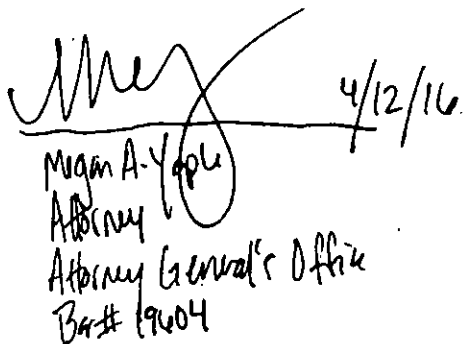 4/12/16
Megan A. Yaple
Attorney
Attorney General's Office
Bar# 19604